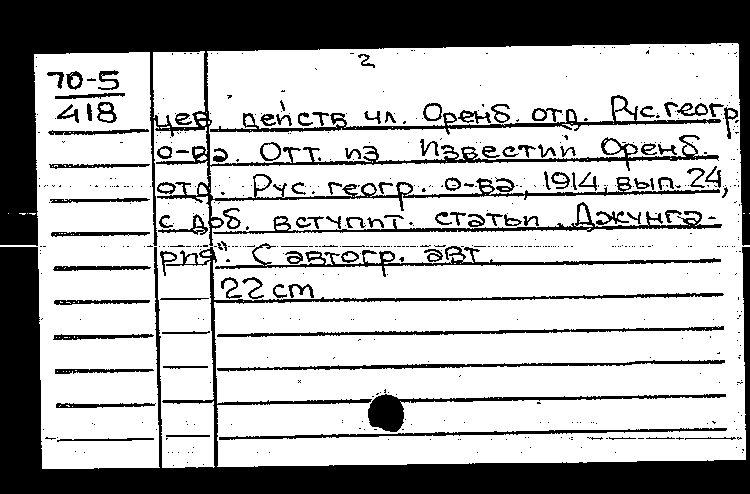 2
70-5
418
цев, действ чл. Оренб. отд. Рус. геогр
о-ва. Отт. из Известий Оренб.
отд. Рус. геогр. о-ва, 1914, вып. 24,
с доб. вступит. статьи „Джунга-
рия". С автогр. авт.
22 cm